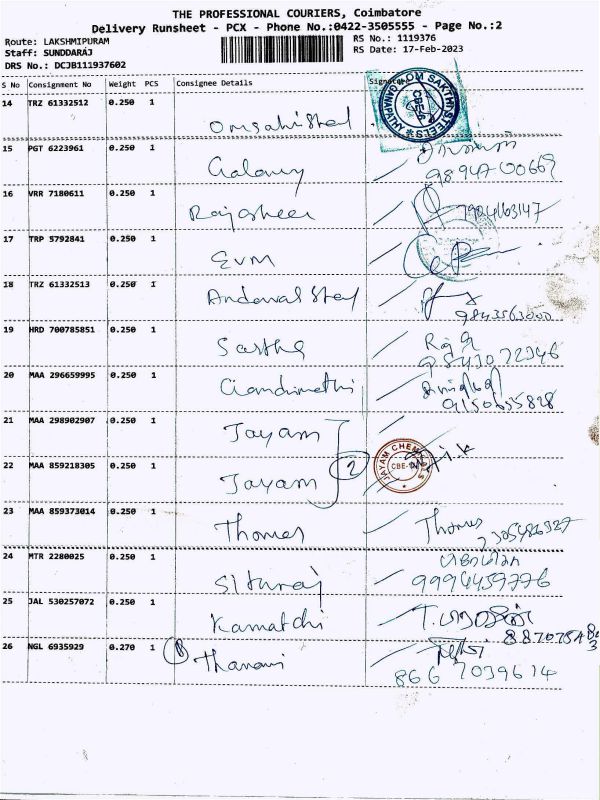 THE PROFESSIONAL COURIERS, Coimbatore
Delivery Runsheet - PCX - Phone No.:0422-3505555 - Page No.:2
Route: LAKSHMIPURAM
RS No.: 1119376
Staff: SUNDDARAJ
RS Date: 17-Feb-2023
DRS No.: DCJB111937602
S No Consignment No Weight PCS Consignee Details Signature
14 TRZ 61332512 0.250 1
OM SAKTHI STEELS
GANAPATHY
CBE-
15 PGT 6223961 0.250 1 Galaxy
98947 00669
16 VRR 7180611 0.250 1 Rajasheer
7904163147
17 TRP 5792841 0.250 1 EVM
18 TRZ 61332513 0.250 1 Andavar Steel
9843563000
19 HRD 700785851 0.250 1 Sastha
Raja
9843072346
20 MAA 296659995 0.250 1
9150655828
21 MAA 298902907 0.250 1 Jayam
22 MAA 859218305 0.250 1 Jayam 2
JAYAM CHEMICALS
CBE-
23 MAA 859373014 0.250 1 Thomas Thomas
24 MTR 2280025 0.250 1 Situraj
9994459776
25 JAL 530257072 0.250 1 Kamatchi
26 NGL 6935929 0.270 1 Tharani
866 7039614